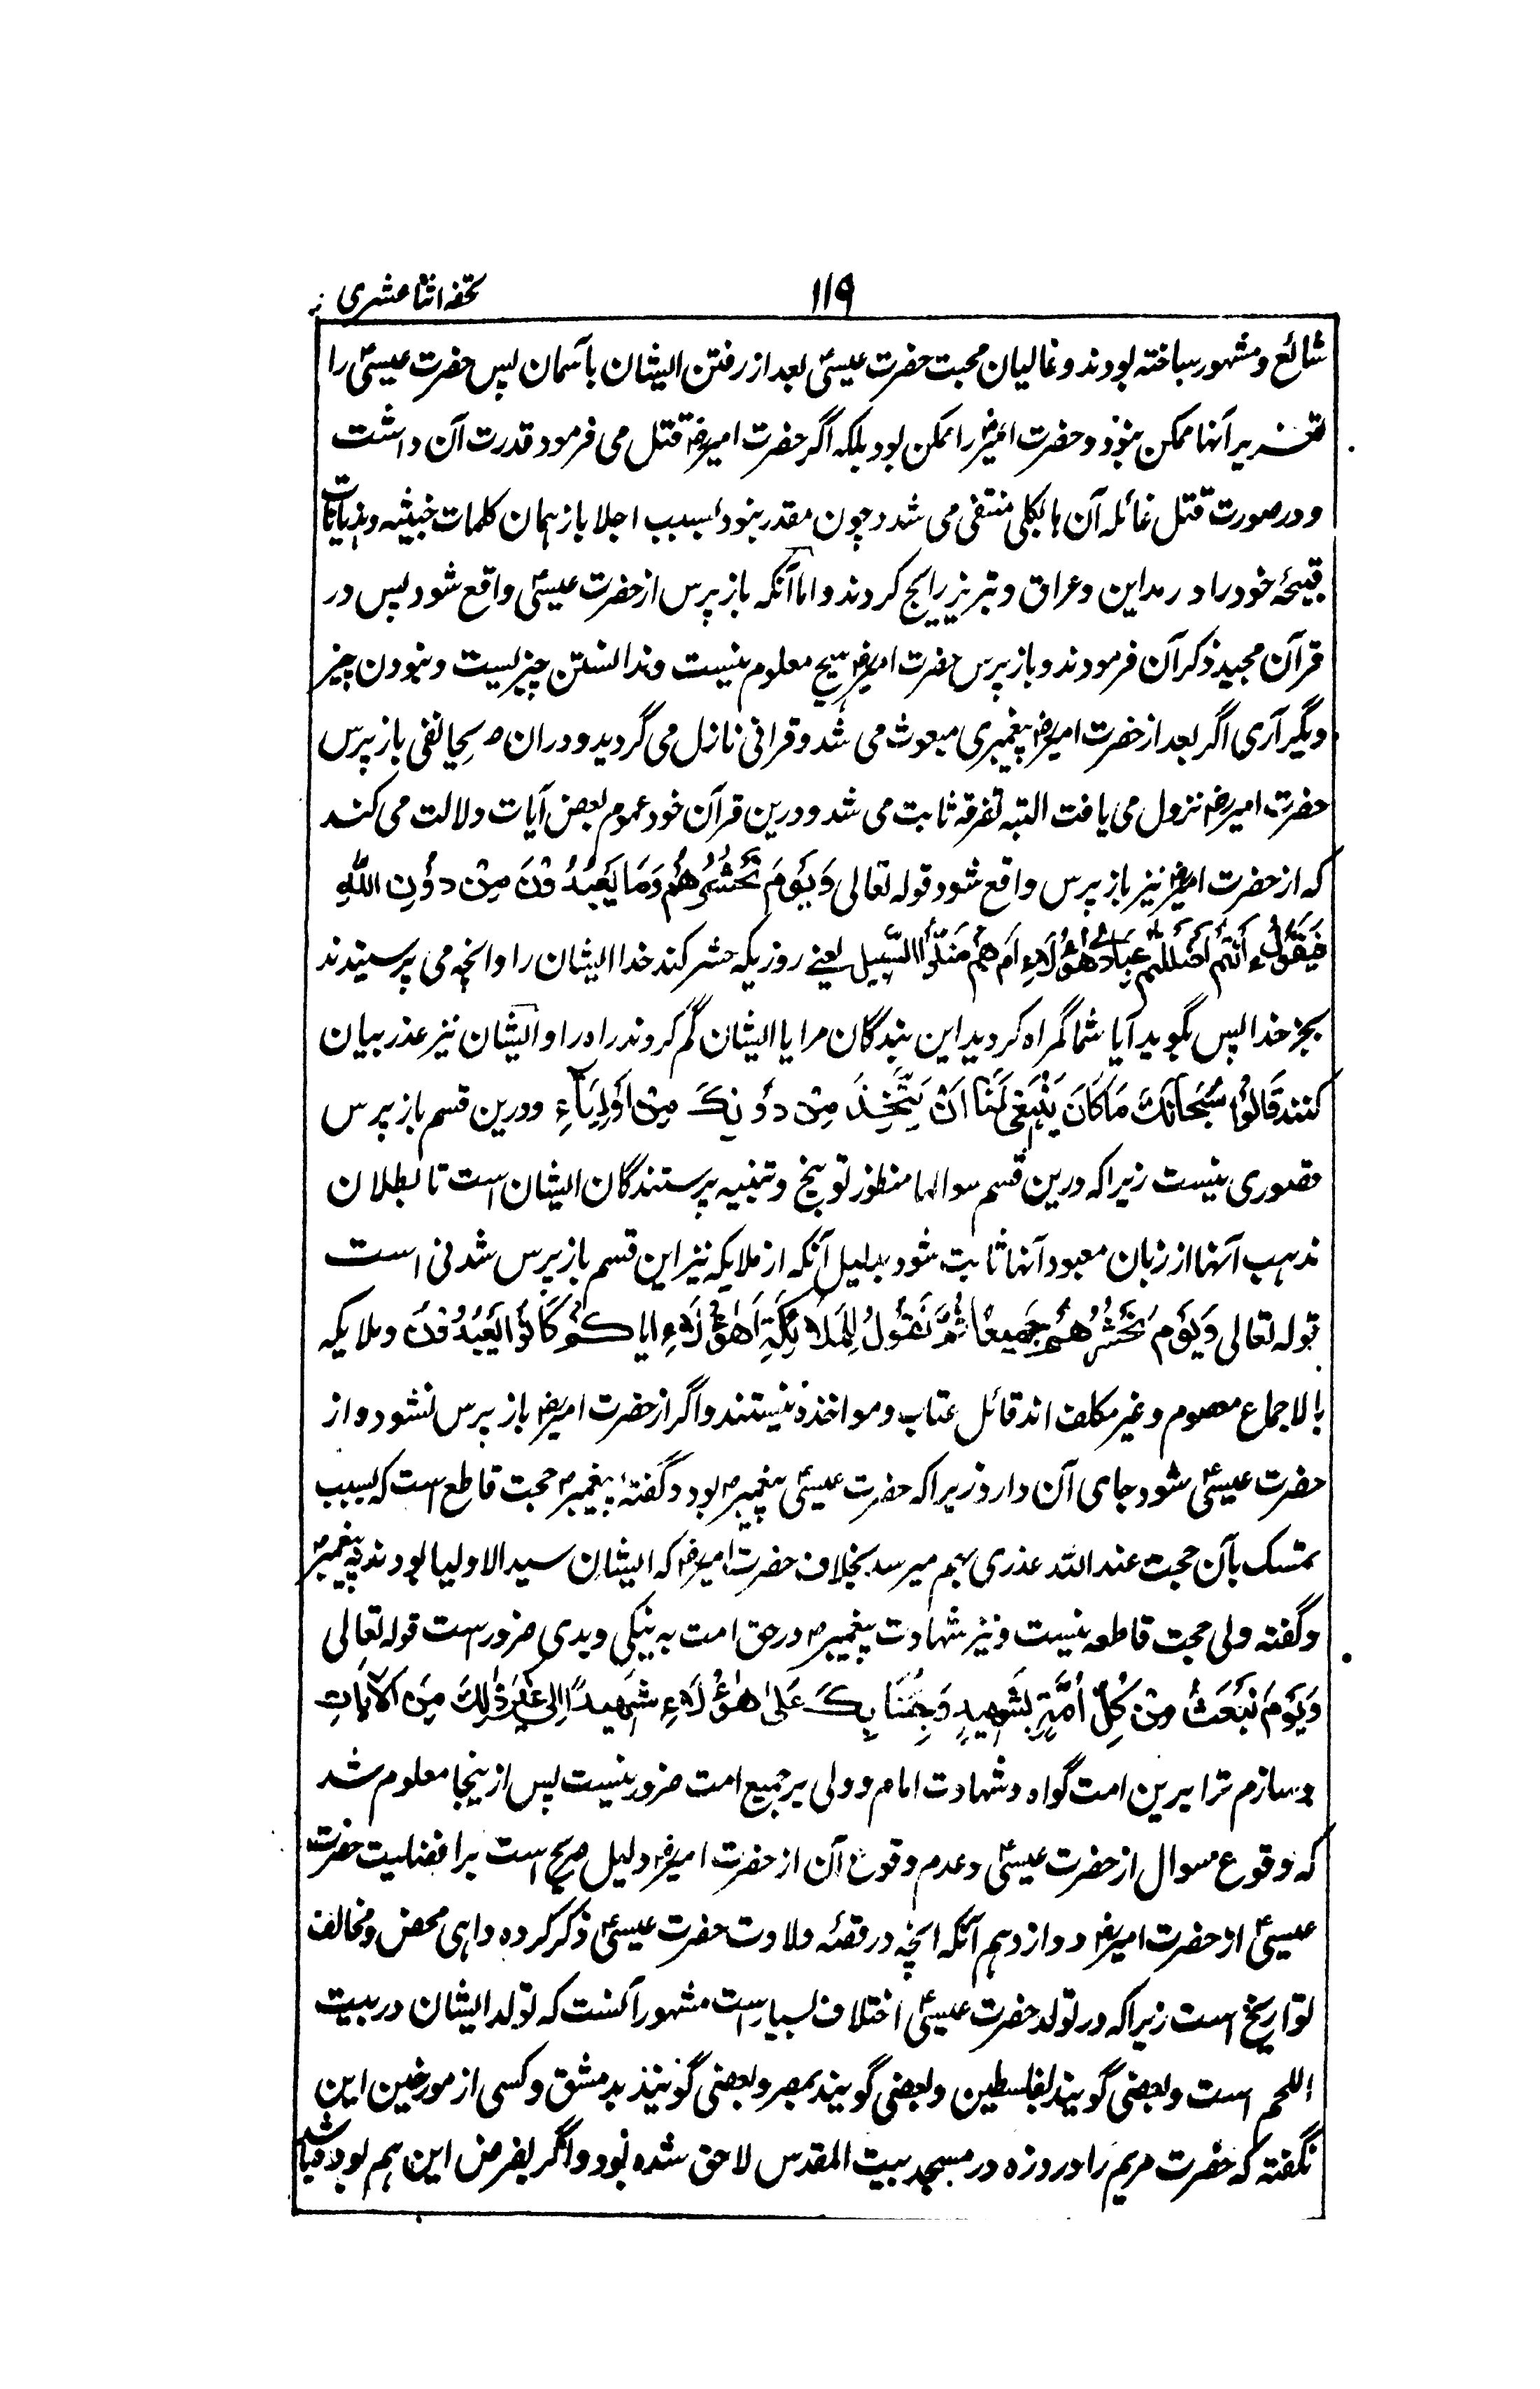 تحفه اثنا عشری
۱۱۹
شائع و مشهور ساخته بودند و غالیان محبت حضرت عیسیٰؑ بعد از رفتن ایشان بآسمان پس حضرت عیسیٰؑ را
تعزیر آنها ممکن نبود و حضرت امیرؓ را ممکن بود بلکه اگر حضرت امیرؓ قتل می فرمود قدرت آن داشت
و در صورت قتل غائله آن ها بکلی منتفی می شد و چون مقدر نبود بسبب اجلا باز همان کلمات خبیثه و هذیانات
قبیحۀ خود را در مداین و عراق و تبریز رایج کردند و اما آنکه باز پرس از حضرت عیسیٰؑ واقع شود پس در
قرآن مجید ذکر آن فرمودند و باز پرس حضرت امیرؓ هیچ معلوم نیست و ندانستن چیزیست و نبودن چیز
دیگر آری اگر بعد از حضرت امیرؓ پیغمبری مبعوث می شد و قرانی نازل می گردید و دران صریحا نفی باز پرس
حضرت امیرؓ نزول می یافت البته تفرقه ثابت می شد و درین قرآن خود عموم بعض آیات دلالت می کند
که از حضرت امیرؓ نیز باز پرس واقع شود قوله تعالی وَیَوْمَ نَحْشُرُهُمْ وَمَا یَعْبُدُوْنَ مِنْ دُوْنِ اللّٰهِ
فَیَقُوْلُ ءَاَنْتُمْ اَضْلَلْتُمْ عِبَادِیْ هٰؤُلَاءِ اَمْ هُمْ ضَلُّوا السَّبِیْل یعنے روزیکه حشر کند خدا ایشان را و انچه می پرستیدند
بجز خدا پس بگوید آیا شما گمراه کردید این بندگان مرا یا ایشان گم کردند راه را و ایشان نیز عذر بیان
کنند قَالُوْا سُبْحَانَكَ مَا كَانَ یَنْبَغِیْ لَنَا اَنْ نَتَّخِذَ مِنْ دُوْنِكَ مِنْ اَوْلِیَآءِ و درین قسم باز پرس
قصوری نیست زیرا که درین قسم سوالها منظور توبیخ و تنبیه پرستندگان ایشان است تا بطلان
مذهب آنها از زبان معبود آنها ثابت شود بدلیل آنکه از ملایکه نیز این قسم باز پرس شدنی است
قوله تعالی وَیَوْمَ نَحْشُرُهُمْ جَمِیعًا ثُمَّ نَقُوْلُ لِلْمَلَائِكَةِ اَهٰؤُلَاءِ اِیَّاكُمْ كَانُوْا یَعْبُدُوْنَ و ملایکه
بالاجماع معصوم و غیر مکلف اند قائل عتاب و مواخذه نیستند و اگر از حضرت امیرؓ باز پرس نشود و از
حضرت عیسیٰؑ شود جای آن دارد زیرا که حضرت عیسیٰؑ پیغمبر بود و گفتۀ پیغمبر حجت قاطع است که بسبب
تمسک بآن حجت عند الله عذری بهم میرسد بخلاف حضرت امیرؓ که ایشان سید الاولیا بودند نه پیغمبر
و گفته ولی حجت قاطعه نیست و نیز شهادت پیغمبر در حق امت به نیکی و بدی ضرور است قوله تعالی
وَیَوْمَ نَبْعَثُ مِنْ كُلِّ اُمَّةٍ بِشَهِیدٍ وَجِئْنَا بِكَ عَلیٰ هٰؤُلَاءِ شَهِیدًا اِلیٰ غَیْرِ ذٰلِكَ مِنَ الْآیَاتِ
و سازم ترا برین امت گواه و شهادت امام و ولی بر جمیع امت ضرور نیست پس ازینجا معلوم شد
که وقوع سوال از حضرت عیسیٰؑ و عدم وقوع آن از حضرت امیرؓ دلیل صریح است بر افضلیت حضرت
عیسیٰؑ از حضرت امیرؓ دوازدهم آنکه انچه در قصۀ ولادت حضرت عیسیٰؑ ذکر کرده واهی محض و مخالف
تواریخ است زیرا که در تولد حضرت عیسیٰؑ اختلاف بسیار است مشهور آنست که تولد ایشان در بیت
اللحم است و بعضی گویند بفلسطین و بعضی گویند بمصر و بعضی گویند بدمشق و کسی از مورخین این
نگفته که حضرت مریم را درد زه در مسجد بیت المقدس لاحق شده بود و اگر بفرض این هم بوده باشد